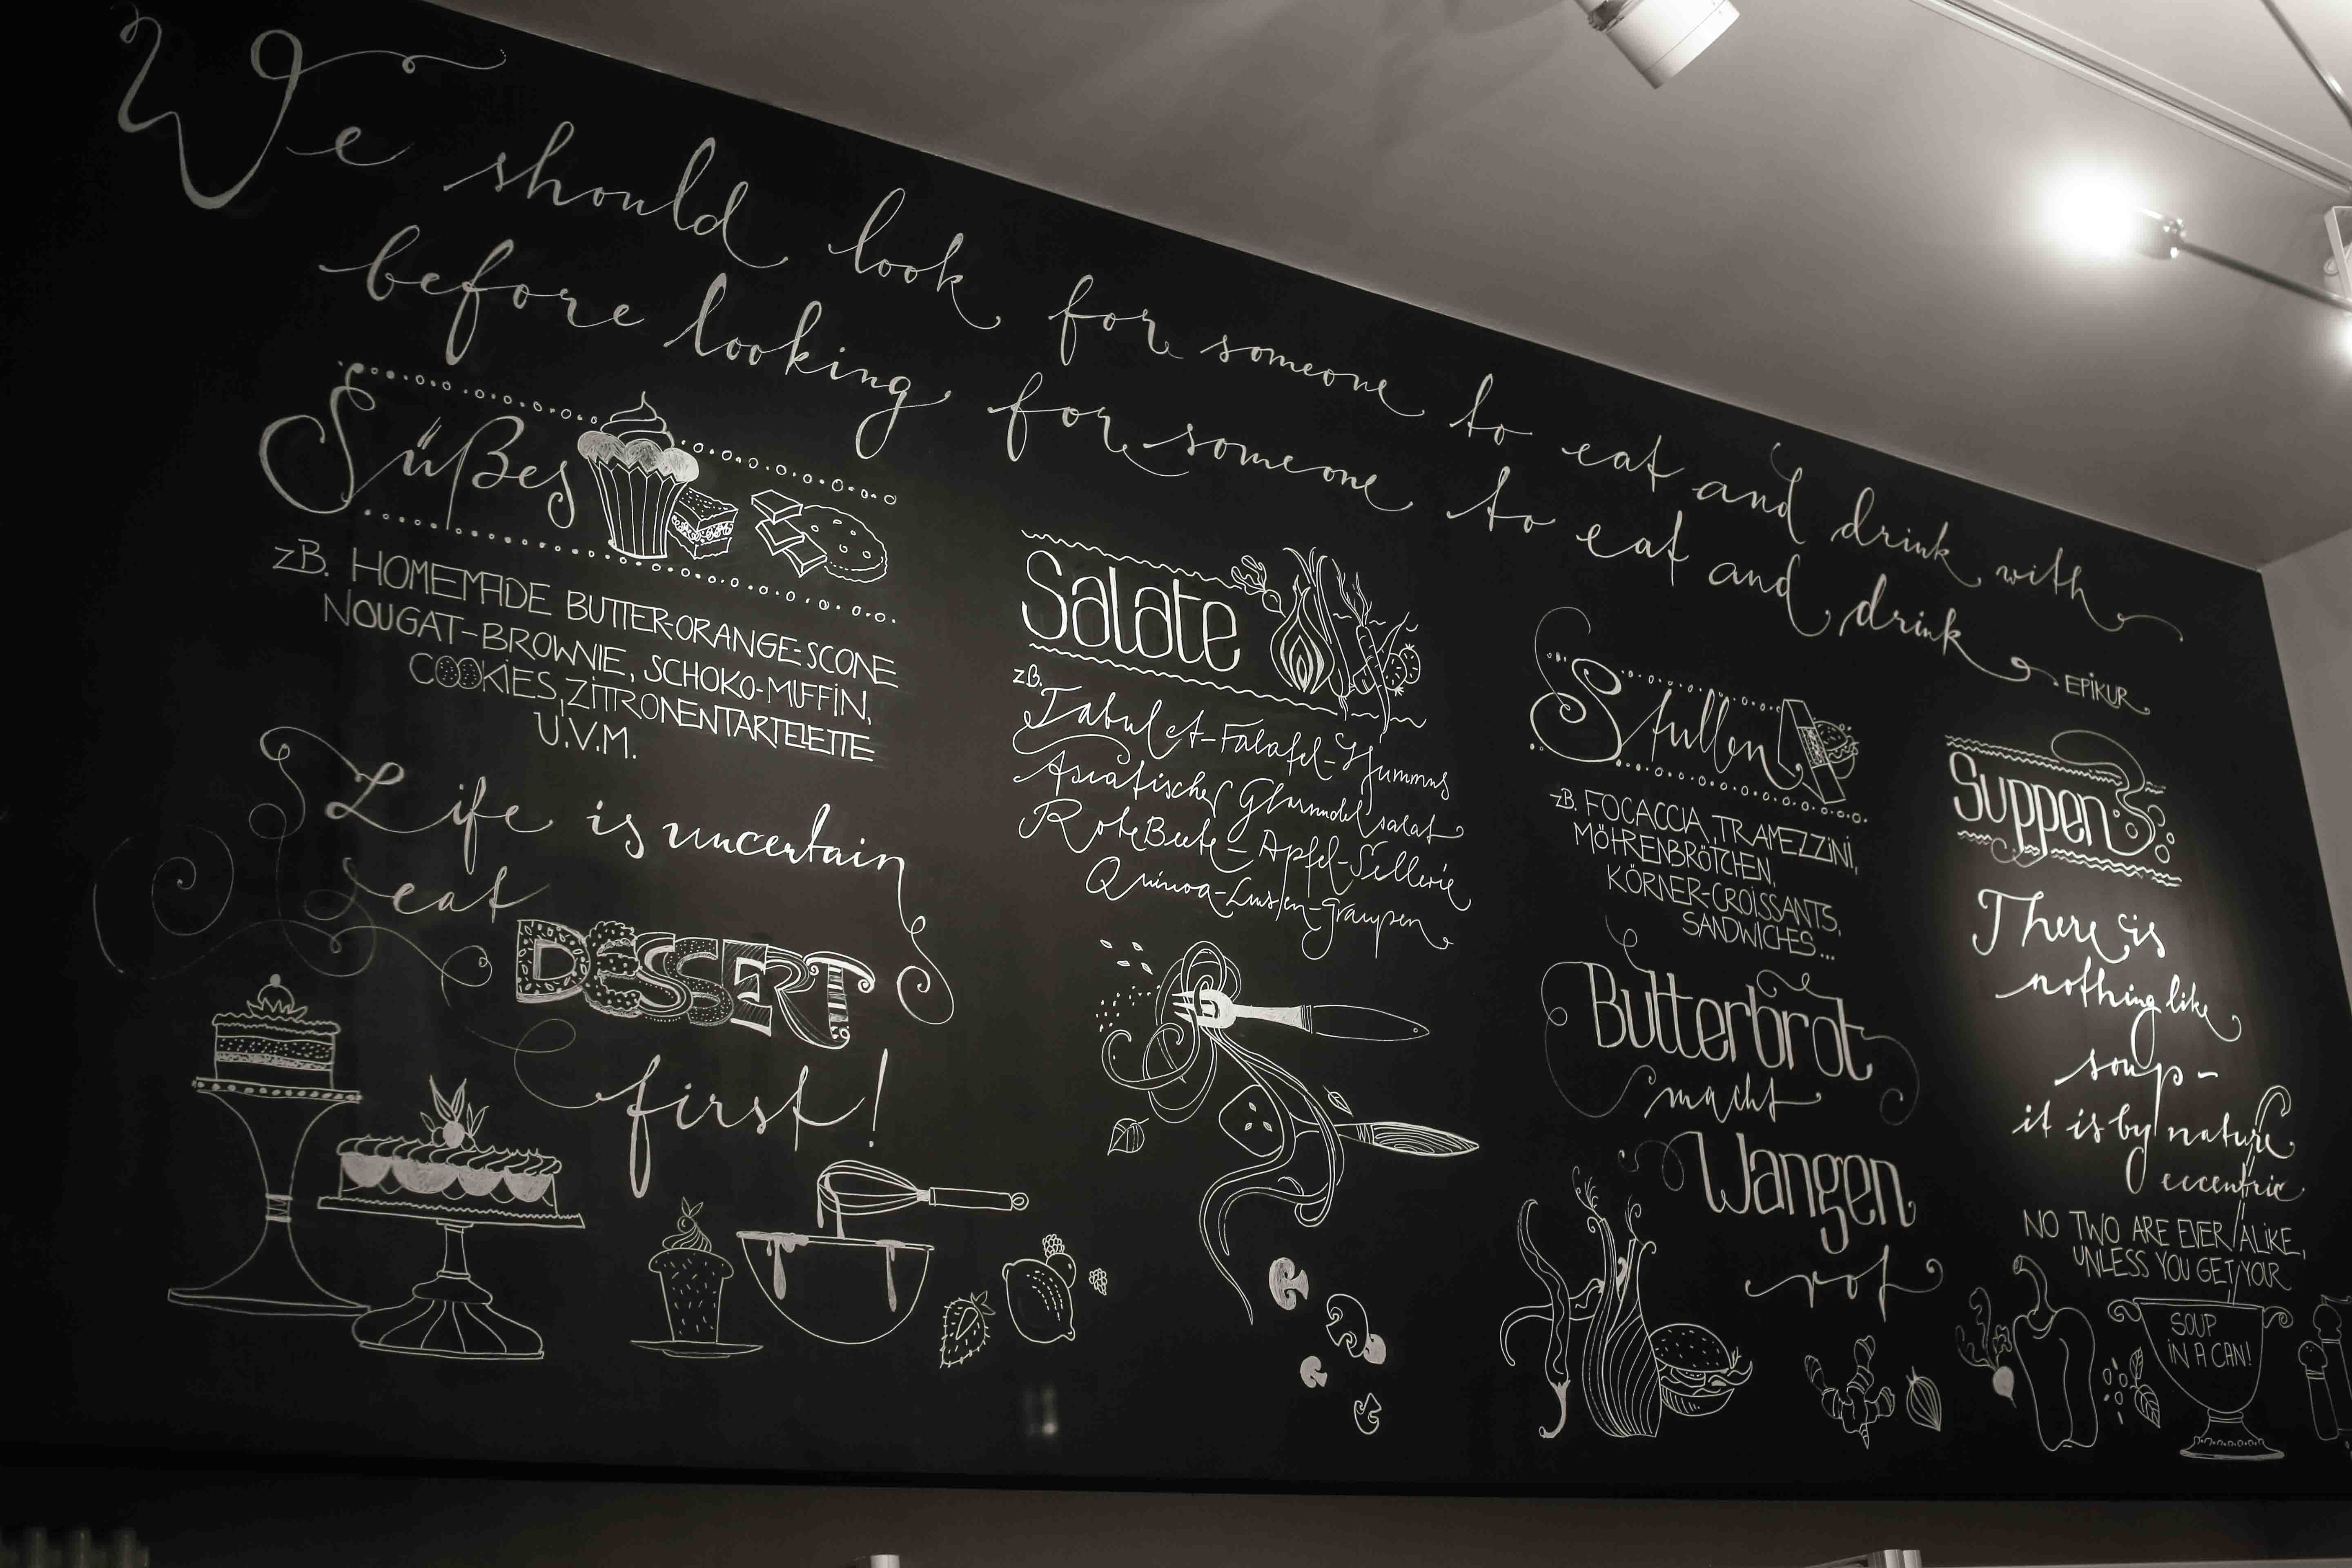 We should look for someone to eat and drink with
before looking for someone to eat and drink
EPIKUR
Süßes
zB. HOMEMADE BUTTER-ORANGE-SCONE
NOUGAT-BROWNIE, SCHOKO-MUFFIN,
COOKIES, ZITRONENTARTELETTE
U.V.M.
Life is uncertain
eat
DESSERT
first!
Salate
z.B.
Tabulet-Falafel-Hummus
Asiatischer Glasnudelsalat
Rote Beete-Apfel-Sellerie
Quinoa-Linsen-Graupen
Stullen
zB. FOCACCIA, TRAMEZZINI,
MÖHRENBRÖTCHEN,
KÖRNER-CROISSANTS,
SANDWICHES...
Butterbrot
macht
Wangen
rot
Suppen
There is
nothing like
soup-
it is by nature
eccentric
NO TWO ARE EVER ALIKE,
UNLESS YOU GET YOUR
SOUP
IN A CAN!